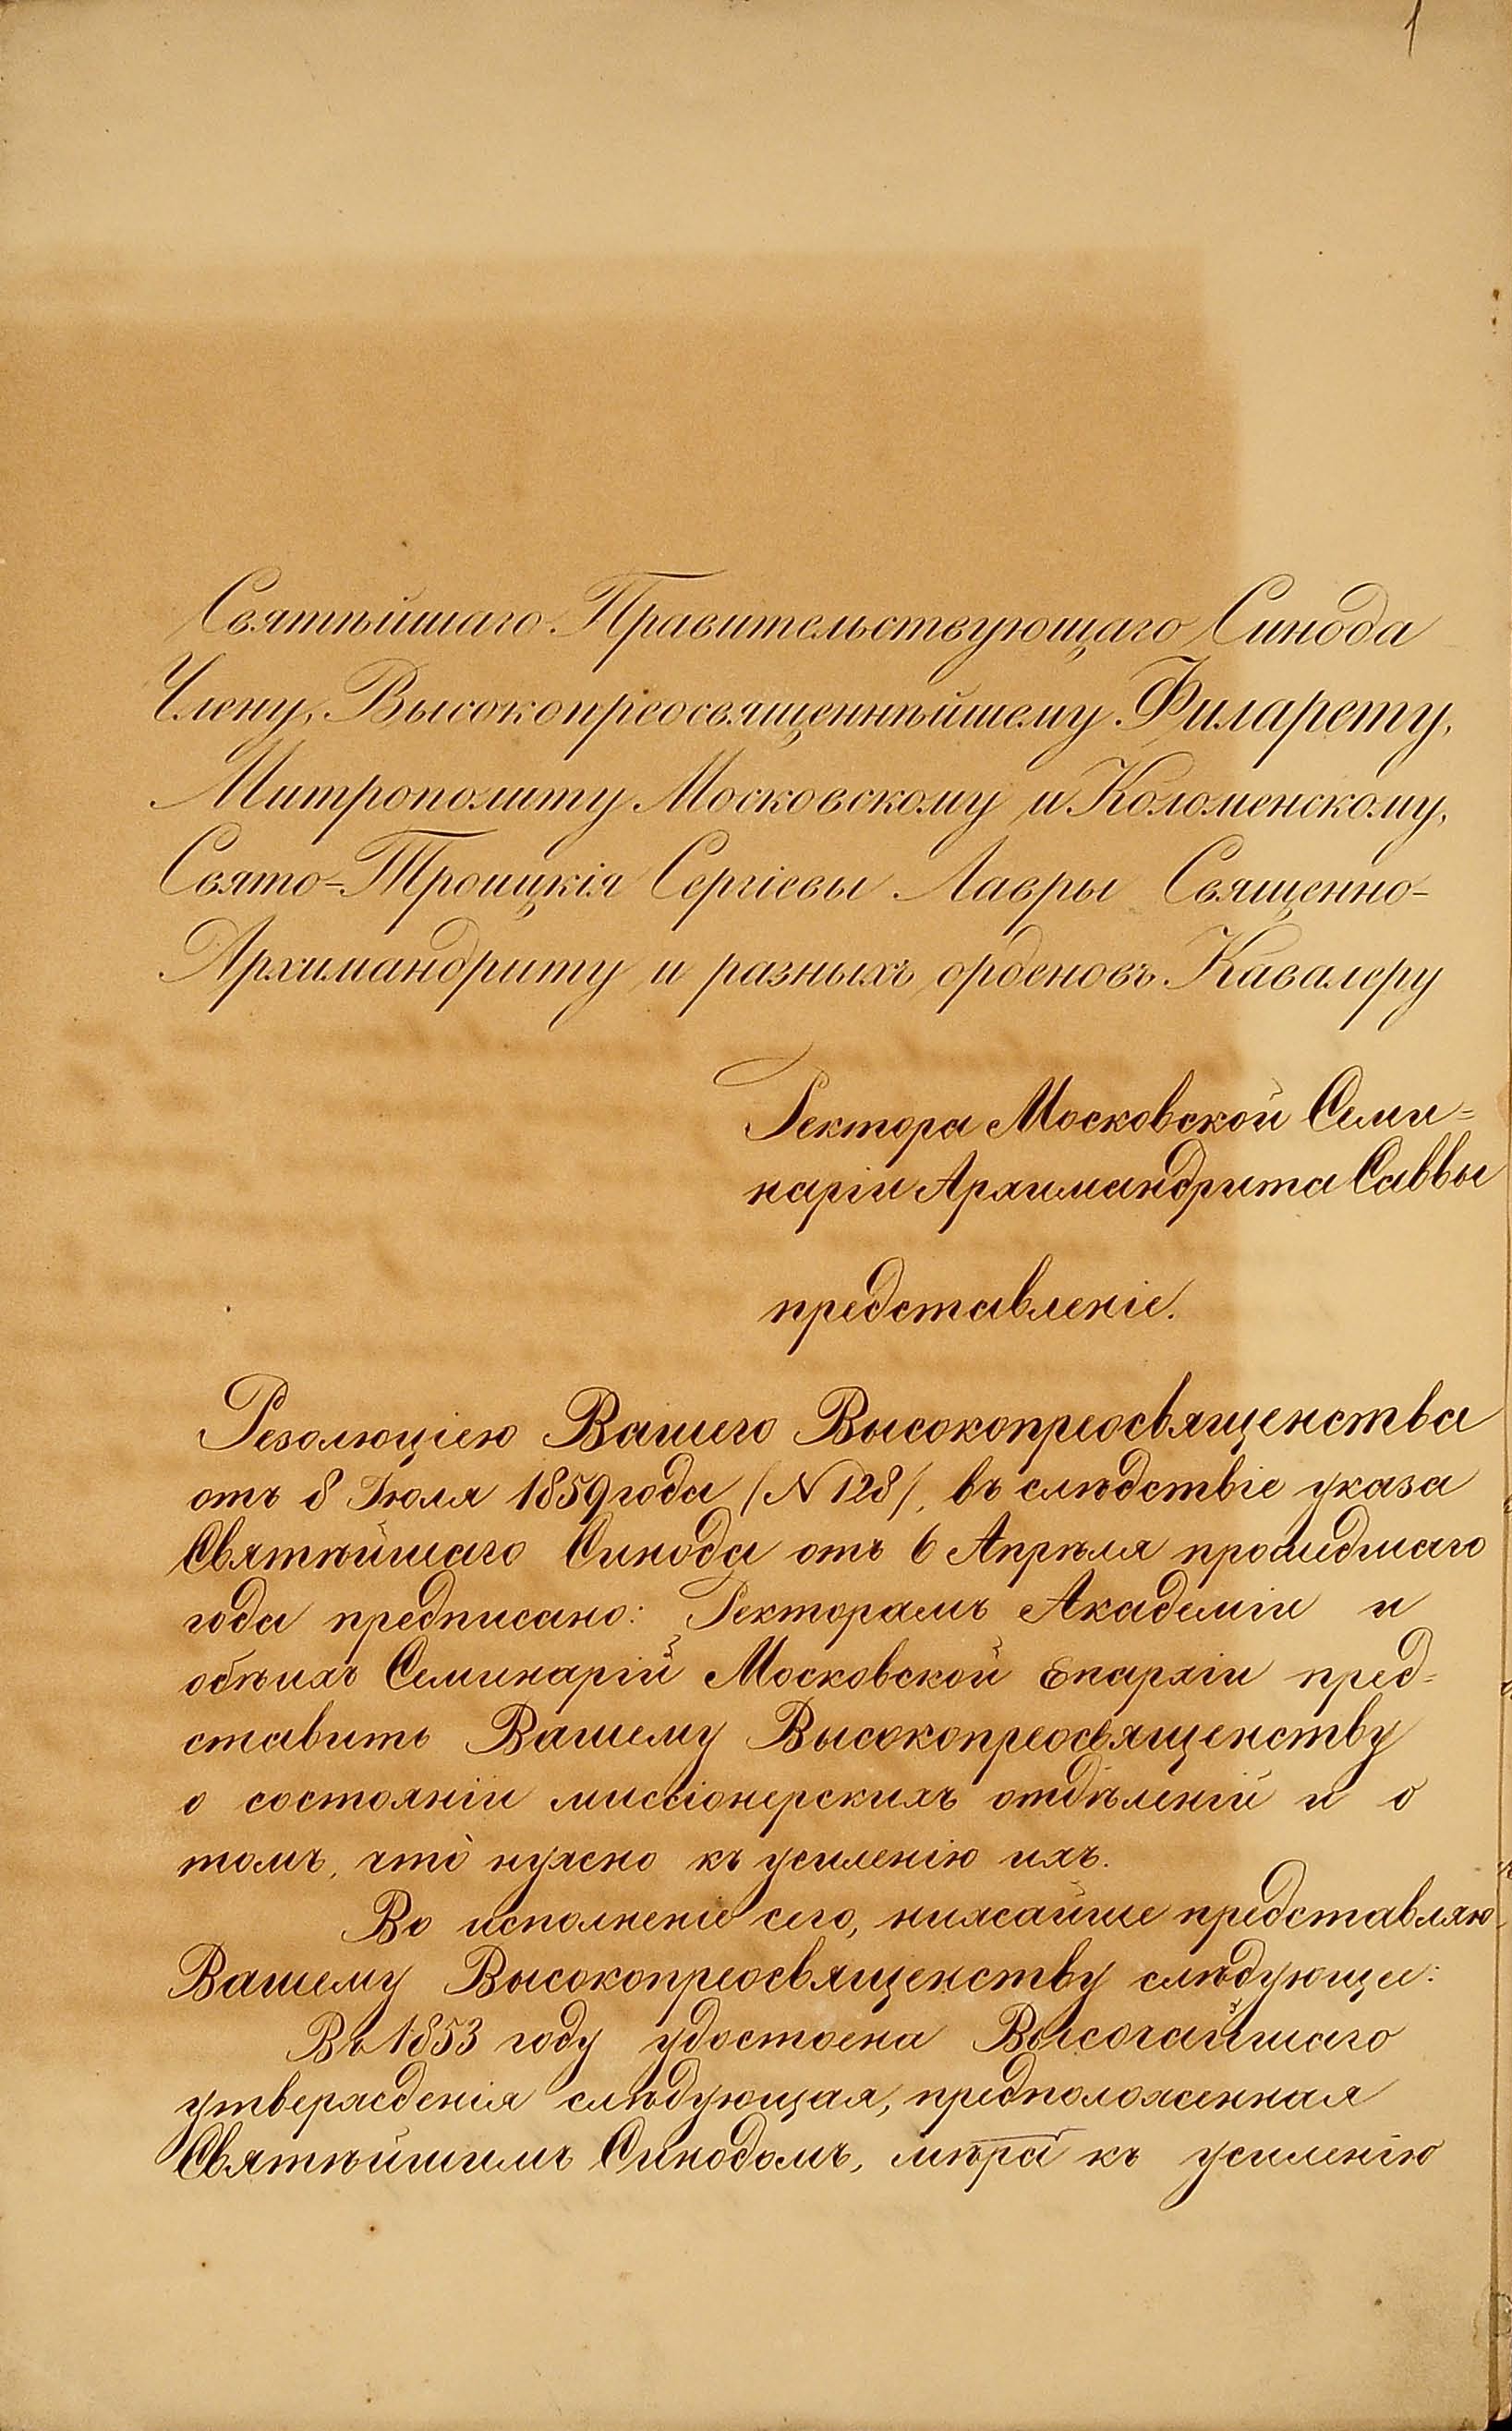 1
Святѣйшаго Правительствующаго Синода
Члену, Высокопреосвященнѣйшему Филарету,
Митрополиту Московскому и Коломенскому,
Свято-Троицкія Сергіевы Лавры Священно-
Архимандриту и разныхъ орденовъ Кавалеру
Ректора Московской Семи=
наріи Архимандрита Саввы
представленіе.
Резолюціею Вашего Высокопреосвященства
отъ 8 Іюля 1859 года (N 128), въ слѣдствіе указа
Святѣйшаго Синода отъ 6 Апрѣля прошедшаго
года предписано: Ректорамъ Академіи и
обѣихъ Семинарій Московской Епархіи пред=
ставить Вашему Высокопреосвященству
о состояніи миссіонерскихъ отдѣленій и о
томъ, что̀ нужно къ усиленію ихъ.
Во исполненіе сего, нижайше представляю
Вашему Высокопреосвященству слѣдующее:
Въ 1853 году удостоена Высочайшаго
утвержденія слѣдующая, предположенная
Святѣйшимъ Синодомъ, мѣра къ усиленію